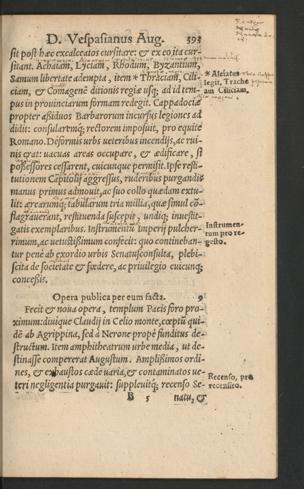 D. Vespasianus Aug. 593
sit post hæc excalceatos cursitare: & ex eo ita cur-
sitant. Achaiam, Lyciam, Rhodum, Byzantium,
Samum libertate adempta, item * Thraciam, Cili-
ciam, & Comagenē ditionis regiæ usq; ad id tem-
pus in provinciarum formam redegit. Cappadociæ
propter aßiduos Barbarorum incursus legiones ad
didit: consularemq; rectorem imposuit, pro equite
Romano. Deformis urbs ueteribus incendijs, ac rui-
nis erat: uacuas areas occupare, & ædificare, si
poßessores cessarent, cuicunque permisit. Ipse resti-
tutionem Capitolij aggressus, ruderibus purgandis
manus primus admouit, ac suo collo quædam extu-
lit: ærearumq; tabularum tria millia, quæ simul cō-
flagrauerant, restituenda suscepit, undiq; inuesti-
gatis exemplaribus. Instrumentū Imperij pulcher-
rimum, ac uetustißimum confecit: quo contineban-
tur penè ab exordio urbis Senatusconsulta, plebi-
scita de societate & fœdere, ac priuilegio cuicunq;
conceßis.
* Alei ates
legit, Trache
am Ciliciam.
Instrumen-
tum pro re-
gesto.
Opera publica per eum facta. 9
Fecit & noua opera, templum Pacis foro pro-
ximum: diuique Claudij in Cœlio monte, cœptū qui-
dē ab Agrippina, sed à Nerone propè funditus de-
structum. Item amphitheatrum urbe media, ut de-
stinasse compererat Augustum. Amplißimos ordi-
nes, & exhaustos cæde uaria, & contaminatos ue-
teri negligentia purgauit: suppleuitq; recenso Se-
Recenso, pro
recensito.
B 5 natu, &